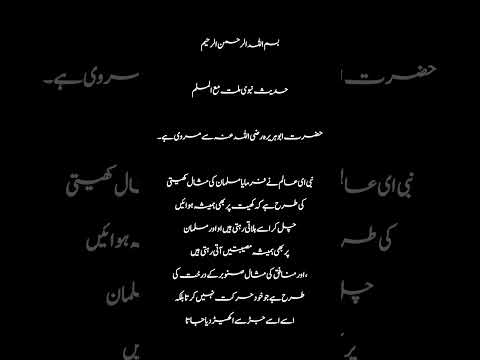 بسم اللہ الرحمن الرحیم
حدیث نبوی ملت مع المسلم
حضرت ابوہریرہ رضی اللہ عنہ سے مروی ہے۔
نبی ای عالم نے فرمایا مسلمان کی مثال کھیتی
کی طرح ہے کہ کھیت پر بھی ہمیشہ ہوائیں
چل کر اسے ہلاتی رہتی ہیں او اور مسلمان
پر بھی ہمیشہ مصیبتیں آتی رہتی ہیں
،اور منافق کی مثال صنوبر کے درخت کی
طرح ہے جو خود حرکت نہیں کرتا بلکہ
اسے اسے جڑ سے اکھیڑ دیا جاتا